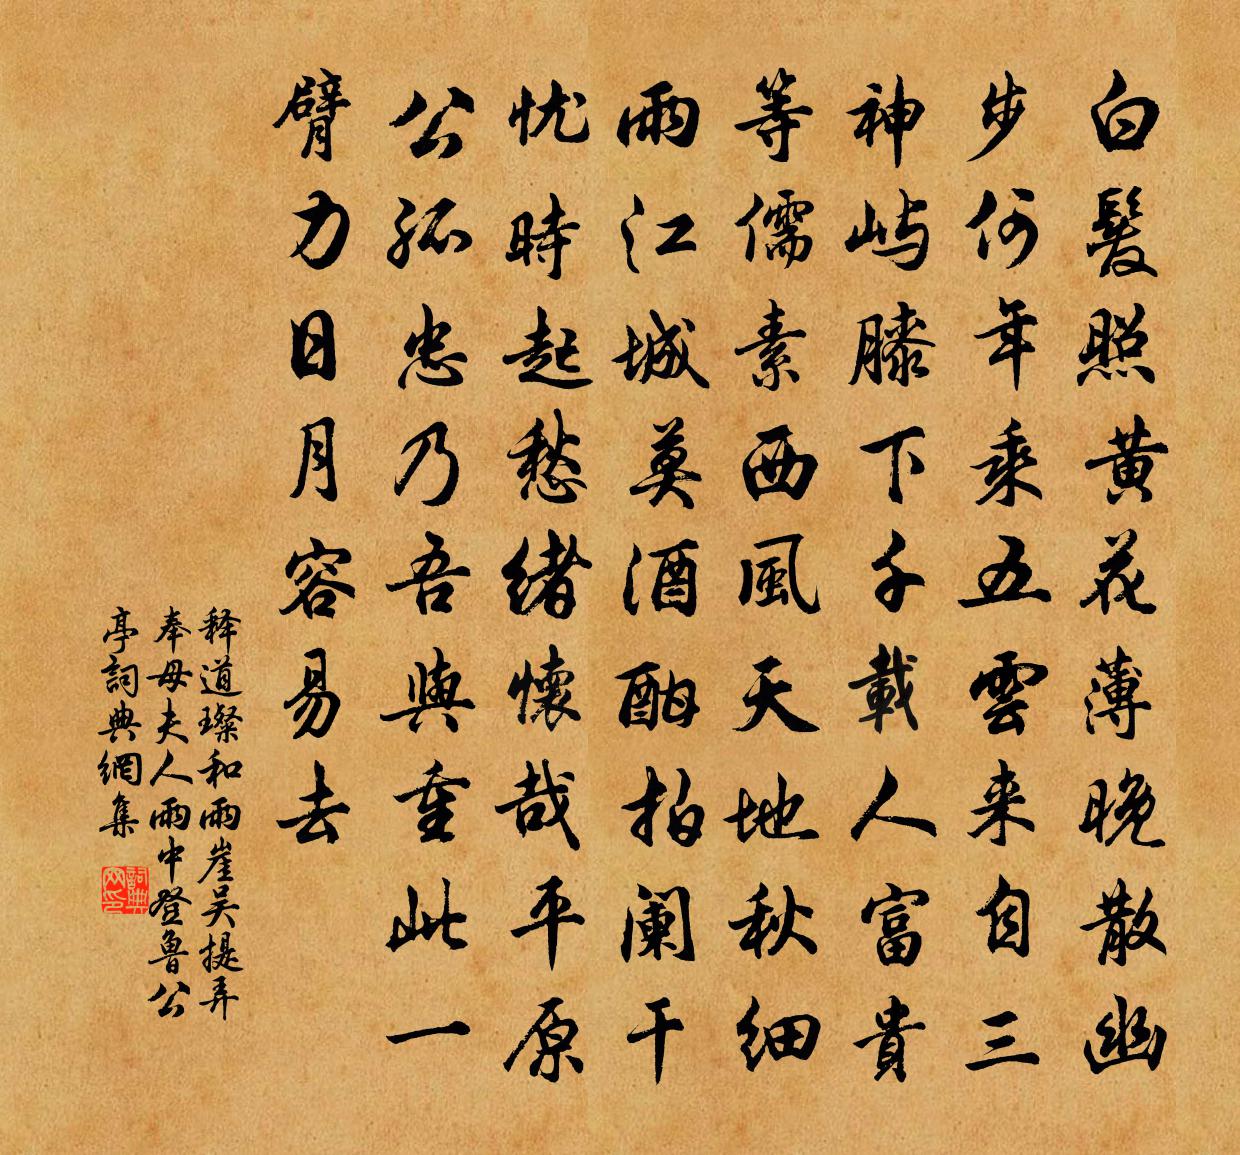 白髮照黄花薄晚散幽
步何年乘五雲来自三
神屿膝下千載人富貴
等儒素西風天地秋细
雨江城莫酒酣拍阑干
忧時起愁緒懷哉平原
公孤忠乃吾與重此一
臂力日月容易去
释道璨和雨崖吴提弄
奉母夫人雨中登鲁公
亭詞典網集
詞典网印